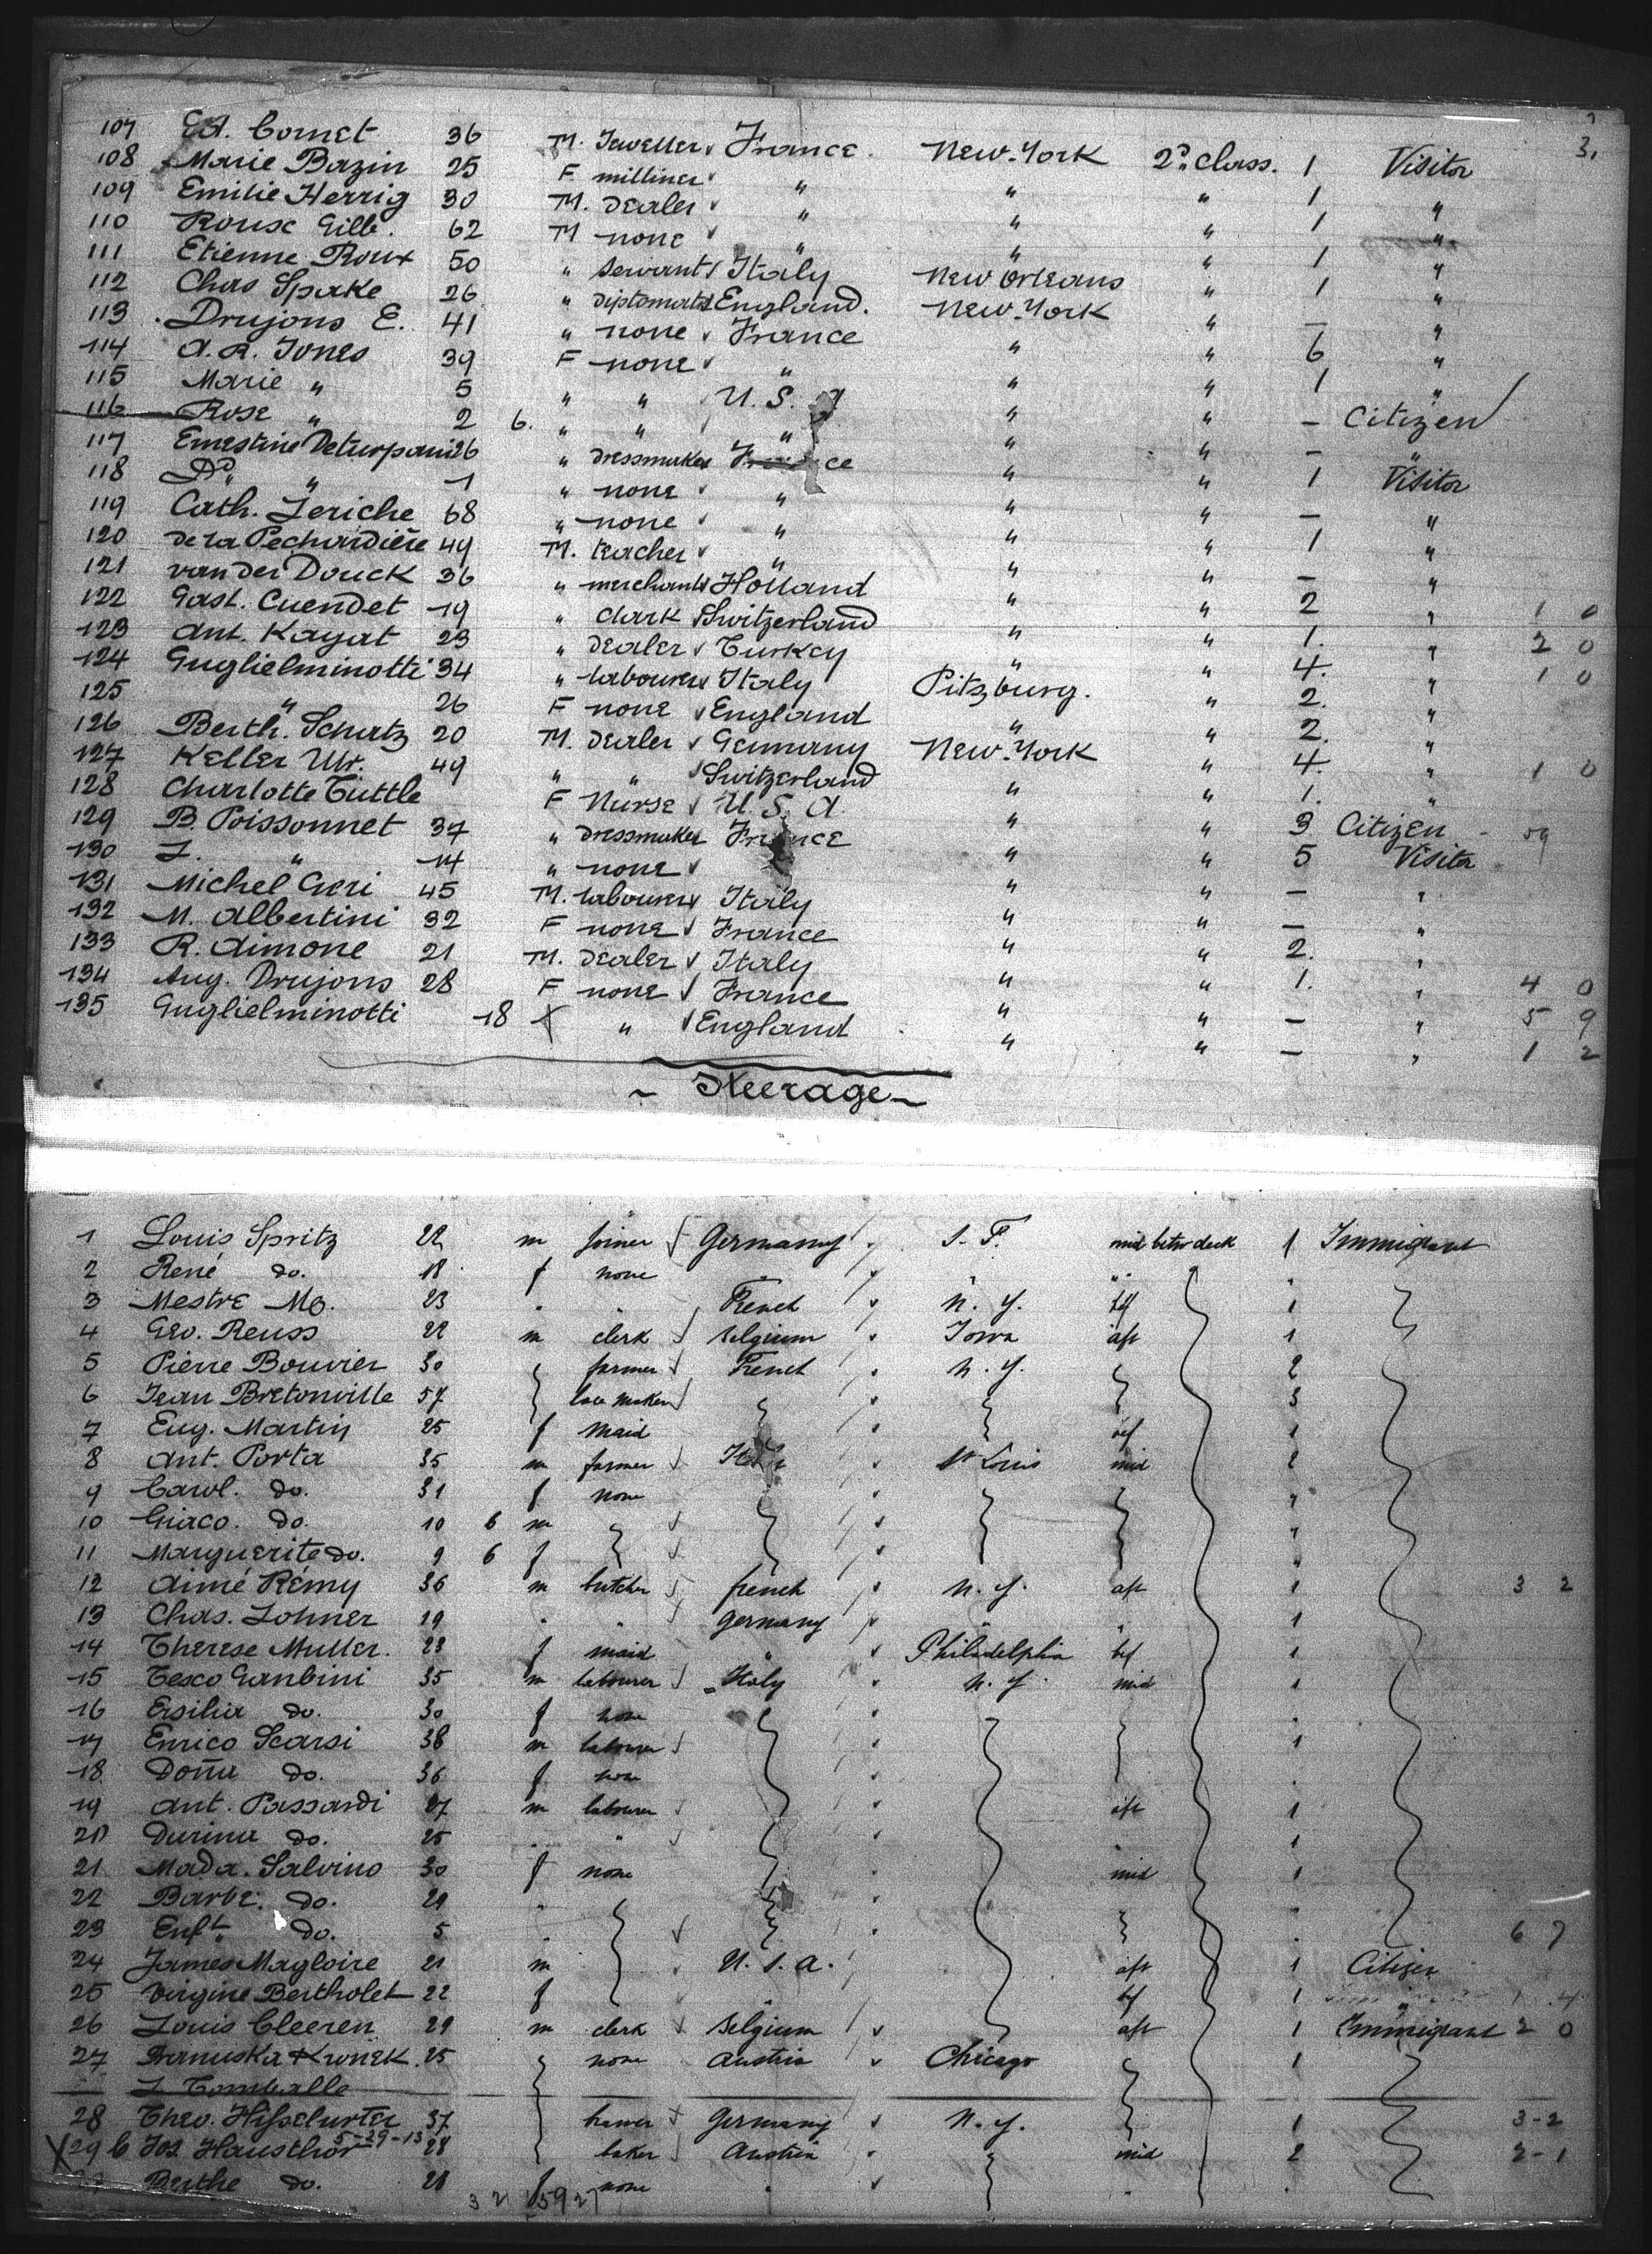 3.
107 Ed. Cornet 36 M. Jeweller France. New-York 2d. Class. 1 Visitor
108 Marie Bazin 25 F milliner " " " 1 "
109 Emilie Herrig 30 M. Dealer " " " 1 "
110 Roux Gilb. 62 M none " " " 1 "
111 Etienne Roux 50 " servant Italy New Orleans " 1 "
112 Chas Spake 26 " diplomat England. New-York " — "
113 Drujons E. 41 " none France " " 6 "
114 A. R. Jones 39 F none " " " 1 "
115 Marie " 5 " " U. S. A " " — Citizen
116 Rose " 2 6. " " " " " — "
117 Ernestine Deturpani 26 " dressmaker France " " 1 Visitor
118 Do. " 1 " none " " " — "
119 Cath. Leriche 68 " none " " " 1 "
120 de la Pechardière 49 M. teacher " " " — "
121 van der Douck 36 " merchant Holland " " 2 " 1 0
122 Gast. Cuendet 19 " Clark Switzerland " " 1. " 2 0
123 Ant. Kayat 23 " Dealer Turkey " " 4. " 1 0
124 Guglielminotti 34 " labourer Italy Pitzburg. " 2. "
125 " 26 F none England " " 2. "
126 Berth. Schatz 20 M. Dealer Germany New-York " 4. " 1 0
127 Keller Ulr. 49 " " Switzerland " " 1. "
128 Charlotte Tuttle F Nurse U. S. A. " " 3 Citizen
129 B. Poissonnet 37 " dressmaker France " " 5 Visitor
130 L. " 14 " none " " — "
131 Michel Geri 45 M. labourer Italy " " — "
132 M. Albertini 32 F none France " " 2. "
133 R. Aimone 21 M. Dealer Italy " " 1. " 4 0
134 Aug. Drujons 28 F none France " " — " 5 9
135 Guglielminotti 18 X " England " " — " 1 2
~ Steerage ~
1 Louis Spritz 22 m joiner Germany S. F. mid betw deck 1 Immigrant
2 René do. 18 f none " " " "
3 Mestre Mg. 23 " " French N. Y. bef 1
4 Geo. Reuss 22 m clerk Belgium Iowa aft 1
5 Pierre Bouvier 30 farmer French N. Y. 2
6 Jean Bretonville 57 lace maker 3
7 Eug. Martin 25 f maid bef 1
8 Ant. Porta 35 m farmer Italy St Louis mid 2
9 Carol. do. 31 f none "
10 Giaco. do. 10 6 m "
11 Marguerite do. 9 6 f "
12 Aimé Remy 36 m butcher french N. Y. aft 1 3 2
13 Chas. Lohner 19 " " Germany " " 1
14 Therese Muller. 23 f maid " Philadelphia bef 1
15 Tesco Ganbini 35 m labourer Italy N. Y. mid 1
16 Ersilia do. 30 f none "
17 Enrico Scarsi 38 m labourer 1
18 Doña do. 36 f none "
19 Ant. Passardi 27 m labourer aft 1
20 Durina do. 25 " " " 1
21 Mada. Salvino 30 f none mid 1
22 Barbe. do. 29 " "
23 Enft. do. 5 " " 6 7
24 James Magloire 21 m U. S. A. aft 1 Citizen
25 Virgine Bertholet 22 f " bef 1 " 1 4
26 Louis Cleeren 29 m clerk Belgium aft 1 Immigrant 2 0
27 Franuska Kronek. 25 none Austria Chicago 1
L Tomballe
28 Theo. 37 Germany N. Y. 1 3-2
5-29-13
X 29 b Jos. Hausthor 28 baker Austria mid 2 2-1
Berthe do. 28 f none " "
3 2 15927